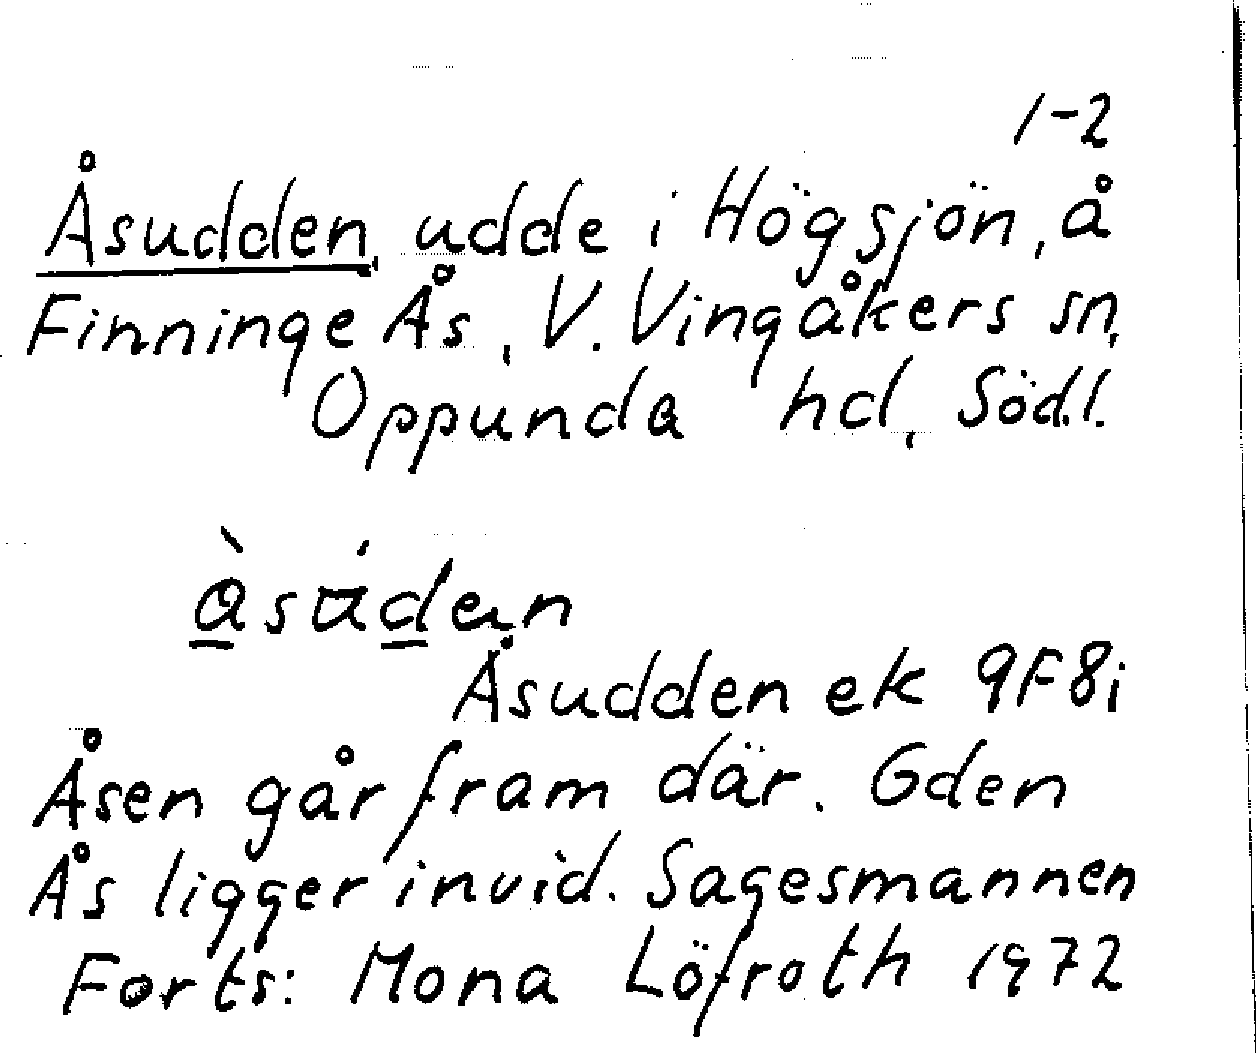 1-2
Åsudden, udde i Högsjön, å
Finninge Ås, V. Vingåkers sn,
Oppunda hd, Södl.
Åsudden ek 9F8i
Åsen går fram där. Gden
Ås ligger invid. Sagesmannen
Forts: Mona Löfroth 1972